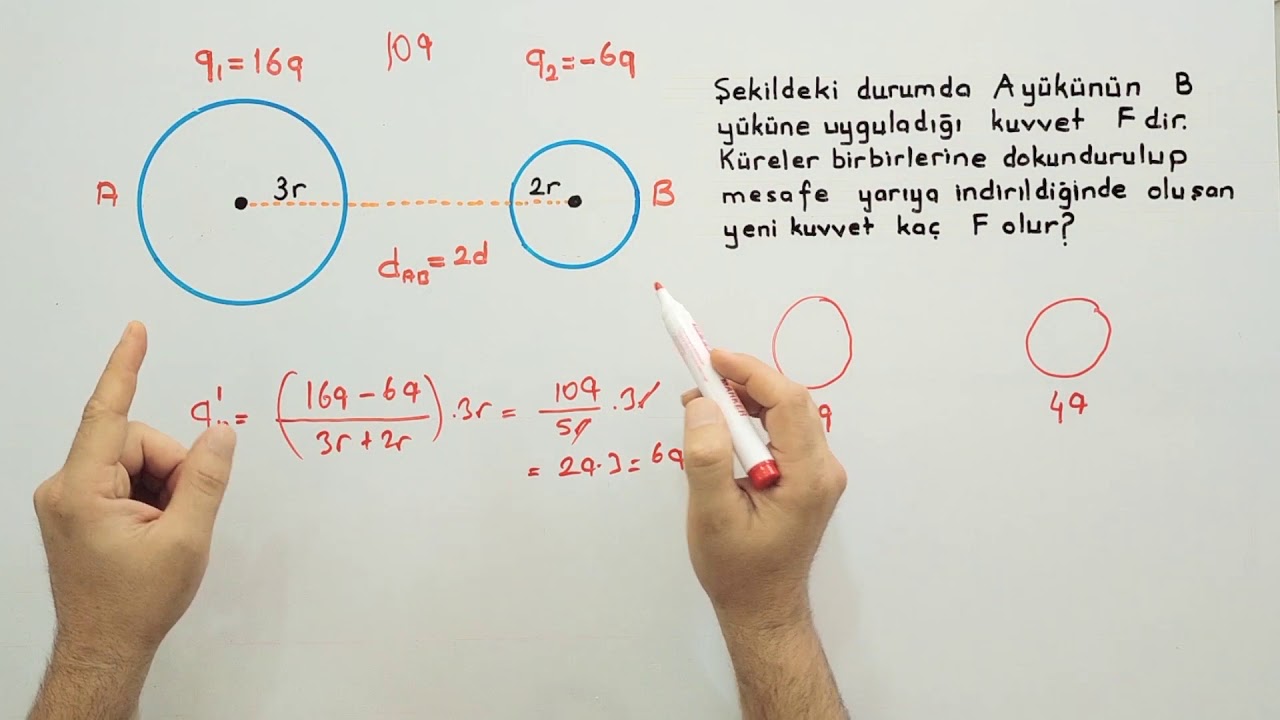 q₁ = 16q
10q
q₂ = -6q
A
3r
2r
B
d_AB = 2d
Şekildeki durumda A yükünün B
yüküne uyguladığı kuvvet F dir.
Küreler birbirlerine dokundurulup
mesafe yarıya indirildiğinde oluşan
yeni kuvvet kaç F olur?
= (16q - 6q / 3r + 2r) . 3r = 10q / 5r . 3r
= 2q . 3 = 6q
q
4q